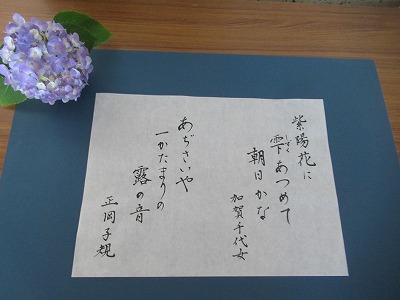 紫陽花に
雫あつめて
しずく
朝日かな
加賀千代女
あぢさいや
一かたまりの
露の音
正岡子規